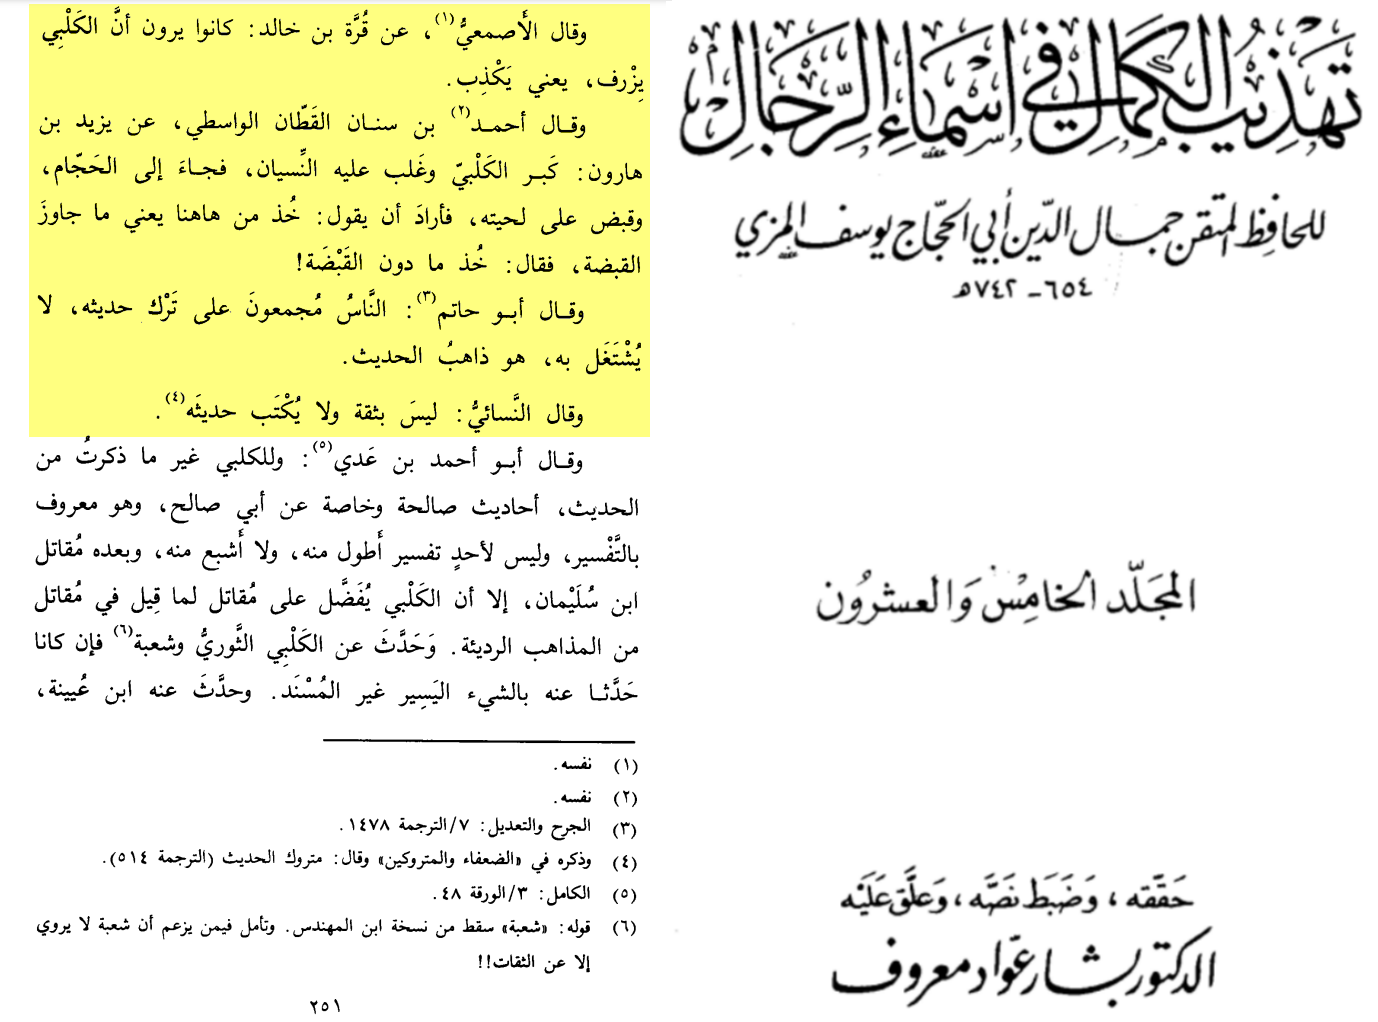 تهذيب الكمال في أسماء الرجال
للحافظ المتقن جمال الدين أبي الحجاج يوسف المزي
٦٥٤ - ٧٤٢ هـ
المجلد الخامس والعشرون
حققه، وضبط نصه، وعلق عليه
الدكتور بشار عواد معروف
وقال الأصمعيُّ(١)، عن قُرَّة بن خالد: كانوا يرون أنَّ الكَلْبِي
يِزْرف، يعني يَكْذِب.
وقال أحمد(٢) بن سنان القَطّان الواسطي، عن يزيد بن
هارون: كَبر الكَلْبيّ وغَلب عليه النِّسيان، فجاءَ إلى الحَجّام،
وقبض على لحيته، فأرادَ أن يقول: خُذ من هاهنا يعني ما جاوزَ
القبضة، فقال: خُذ ما دون القَبْضَة!
وقال أبو حاتم(٣): النَّاسُ مُجمعونَ على تَرْك حديثه، لا
يُشْتَغَل به، هو ذاهبُ الحديث.
وقال النَّسائيُّ: ليسَ بثقة ولا يُكْتَب حديثَه(٤).
وقال أبو أحمد بن عَدي(٥): وللكلبي غير ما ذكرتُ من
الحديث، أحاديث صالحة وخاصة عن أبي صالح، وهو معروف
بالتَّفْسير، وليس لأحدٍ تفسير أَطول منه، ولا أَشبع منه، وبعده مُقاتل
ابن سُلَيْمان، إلا أن الكَلْبي يُفَضَّل على مُقاتل لما قِيل في مُقاتل
من المذاهب الرديئة. وَحَدَّثَ عن الكَلْبِي الثَّوريُّ وشعبة(٦) فإن كانا
حَدَّثا عنه بالشيء اليَسِير غير المُسْنَد. وحدَّثَ عنه ابن عُيينة،
(١) نفسه.
(٢) نفسه.
(٣) الجرح والتعديل: ٧/الترجمة ١٤٧٨.
(٤) وذكره في «الضعفاء والمتروكين» وقال: متروك الحديث (الترجمة ٥١٤).
(٥) الكامل: ٣/الورقة ٤٨.
(٦) قوله: «شعبة» سقط من نسخة ابن المهندس. وتأمل فيمن يزعم أن شعبة لا يروي
إلا عن الثقات!!
٢٥١